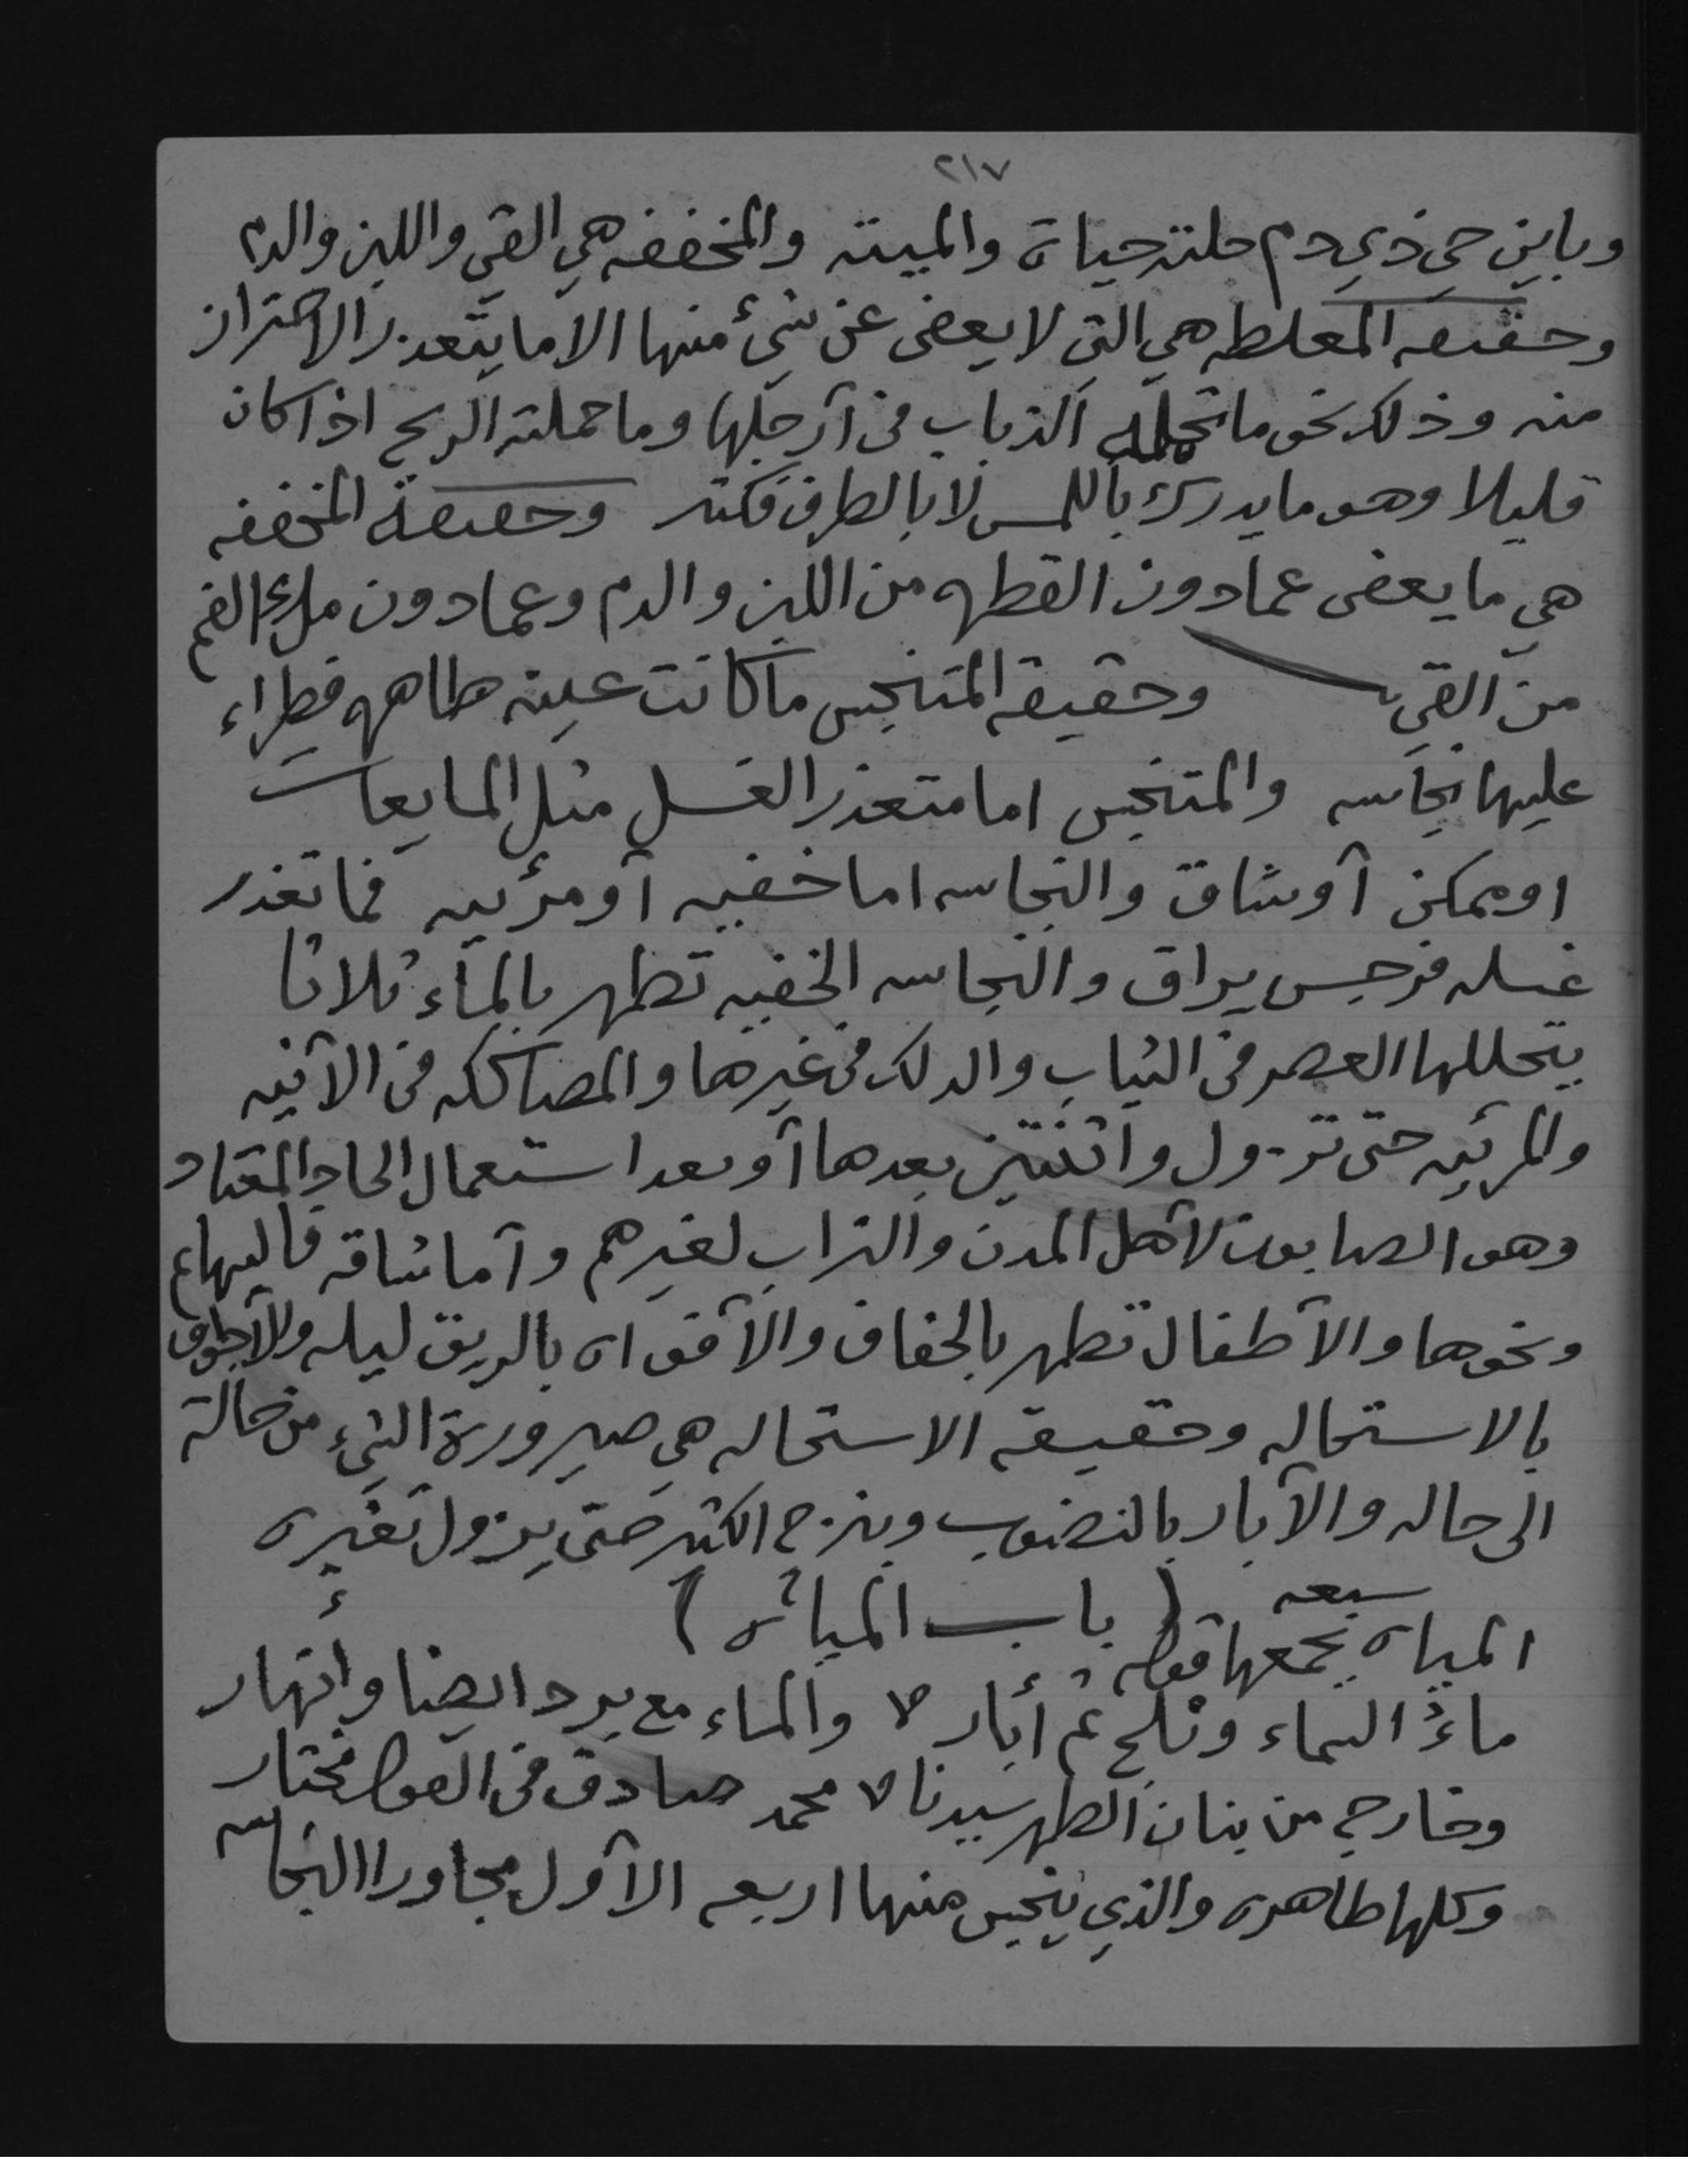 ٢١٧
وباين حي ذي دم حلته حياة والميته والمخففه هي القي واللبن والدم
وحقيقه المغلظه هي التي لا يعفى عن شيءٍ منها الا ما يتعذر الاحتراز
منه وذلك نحو ما تحمله الذباب في أرجلها وما حملته الريح اذا كان
قليلا وهو ما يدرك باللمس لا بالطرف فكثر وحقيقة المخففه
هي ما يعفى عما دون القطره من اللبن والدم وعما دون ملء الفم
من القي وحقيقه المتنجس ما كانت عينه طاهره فطراء
عليها نجاسه والمتنجس اما متعذر الغسل مثل المايعات
او ممكن أو شاق والنجاسه اما خفيه أو مرئيه فما تعذر
غسله فرجس يراق والنجاسه الخفيه تطهر بالماء ثلاثا
يتخللها العصر في الثياب والدلك في غيرها والمصاككه في الآنيه
والمرئيه حتى تزول واثنتين بعدها أو بعد استعمال الحاد المعتاد
وهو الصابون لأهل المدن والتراب لغيرهم وأما شاقه فالبهايم
ونحوها والأطفال تطهر بالجفاف والأفواه بالريق ليله والأجواف
بالاستحاله وحقيقه الاستحاله هي صيرورة الشيء من حالة
الى حاله والآبار بالنضوب وينزح الكثير حتى يزول تغيره
( باب المياه )
المياه سبعه يجمعها قوله
ماءُ السماء وثلج ثم أبار والماء مع برد ايضا وانهار
وخارج من بنان الطهر سيدنا محمد صادق في القول مختار
وكلها طاهره والذي ينجس منها اربعه الأول مجاورا النجاسه